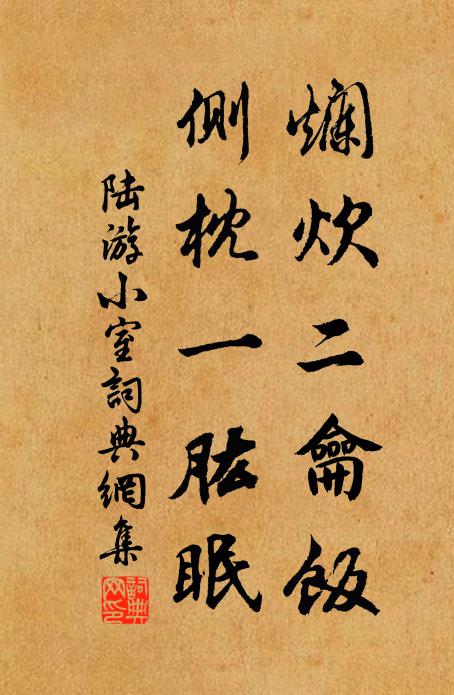 爛炊二龠飯
側枕一肱眠
陆游小室詞典網集
詞典网印